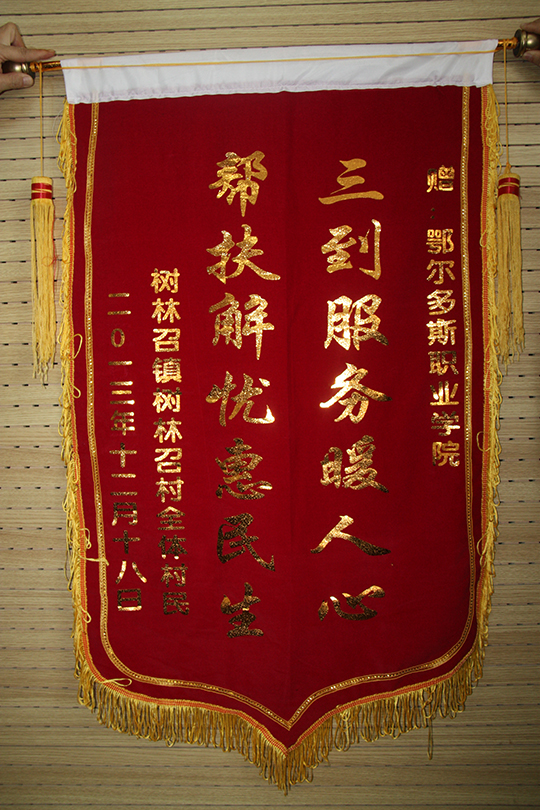 赠：鄂尔多斯职业学院
三到服务暖人心
帮扶解忧惠民生
树林召镇树林召村全体村民
二0一三年十二月十八日